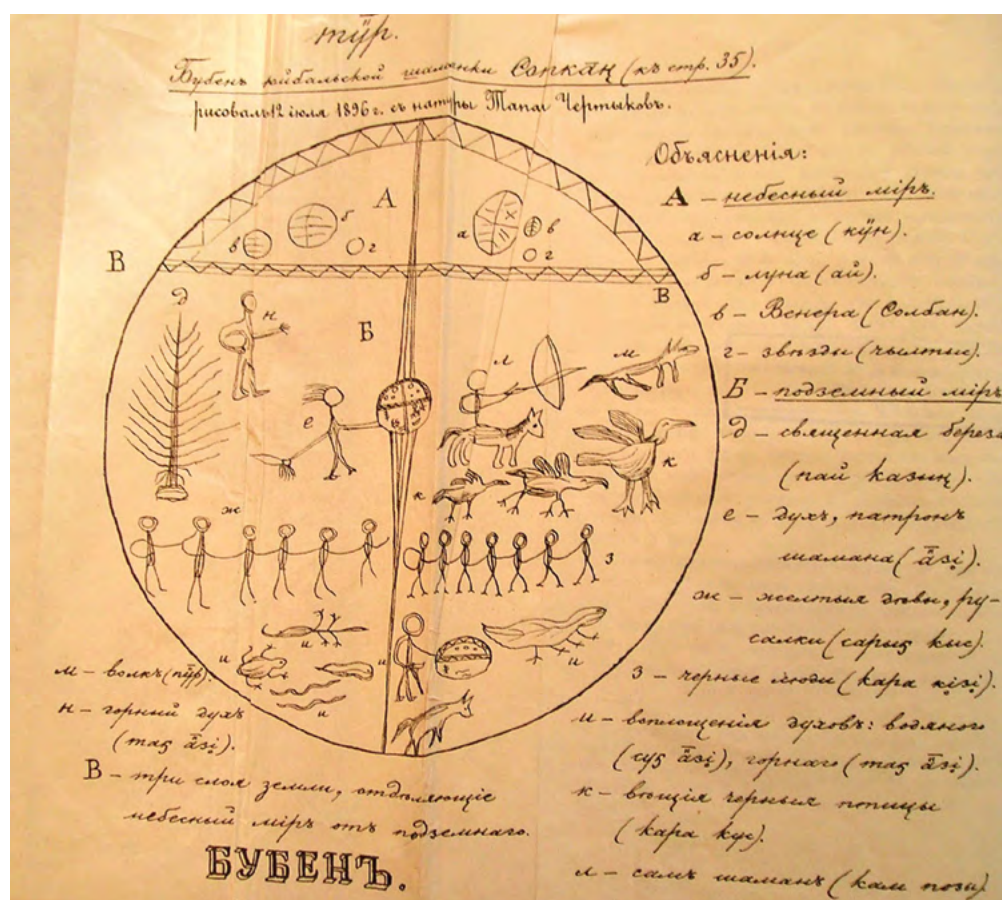 тӱр.
Бубенъ койбальской шаманки Сопкāң (къ стр. 35).
рисовалъ 12 іюля 1896 г. съ натуры Танаг Чертыковъ.
Объясненія:
А – небесный міръ.
а – солнце (кӱн).
б – луна (ай).
в – Венера (Солбан).
г – звѣзды (чылтыс).
Б – подземный міръ
д – священная береза
(пай казың).
е – духъ, патронъ
шамана (āзі).
ж – желтыя дѣвы, ру-
салки (сарыҕ кыс).
з – черные люди (кара кізі).
и – воплощенія духовъ: водяного
(суҕ āзі), горнаго (таҕ āзі).
к – вѣщія черныя птицы
(кара кус).
л – самъ шаманъ (кам позы)
м – волкъ (пӱр).
н – горный духъ
(таҕ āзі).
В – три слоя земли, отдѣляющіе
небесный міръ отъ подземнаго.
БУБЕНЪ.
А
б
в
г
а
в
г
В
В
д
н
Б
л
м
е
к
к
ж
з
и
и
и
и
и